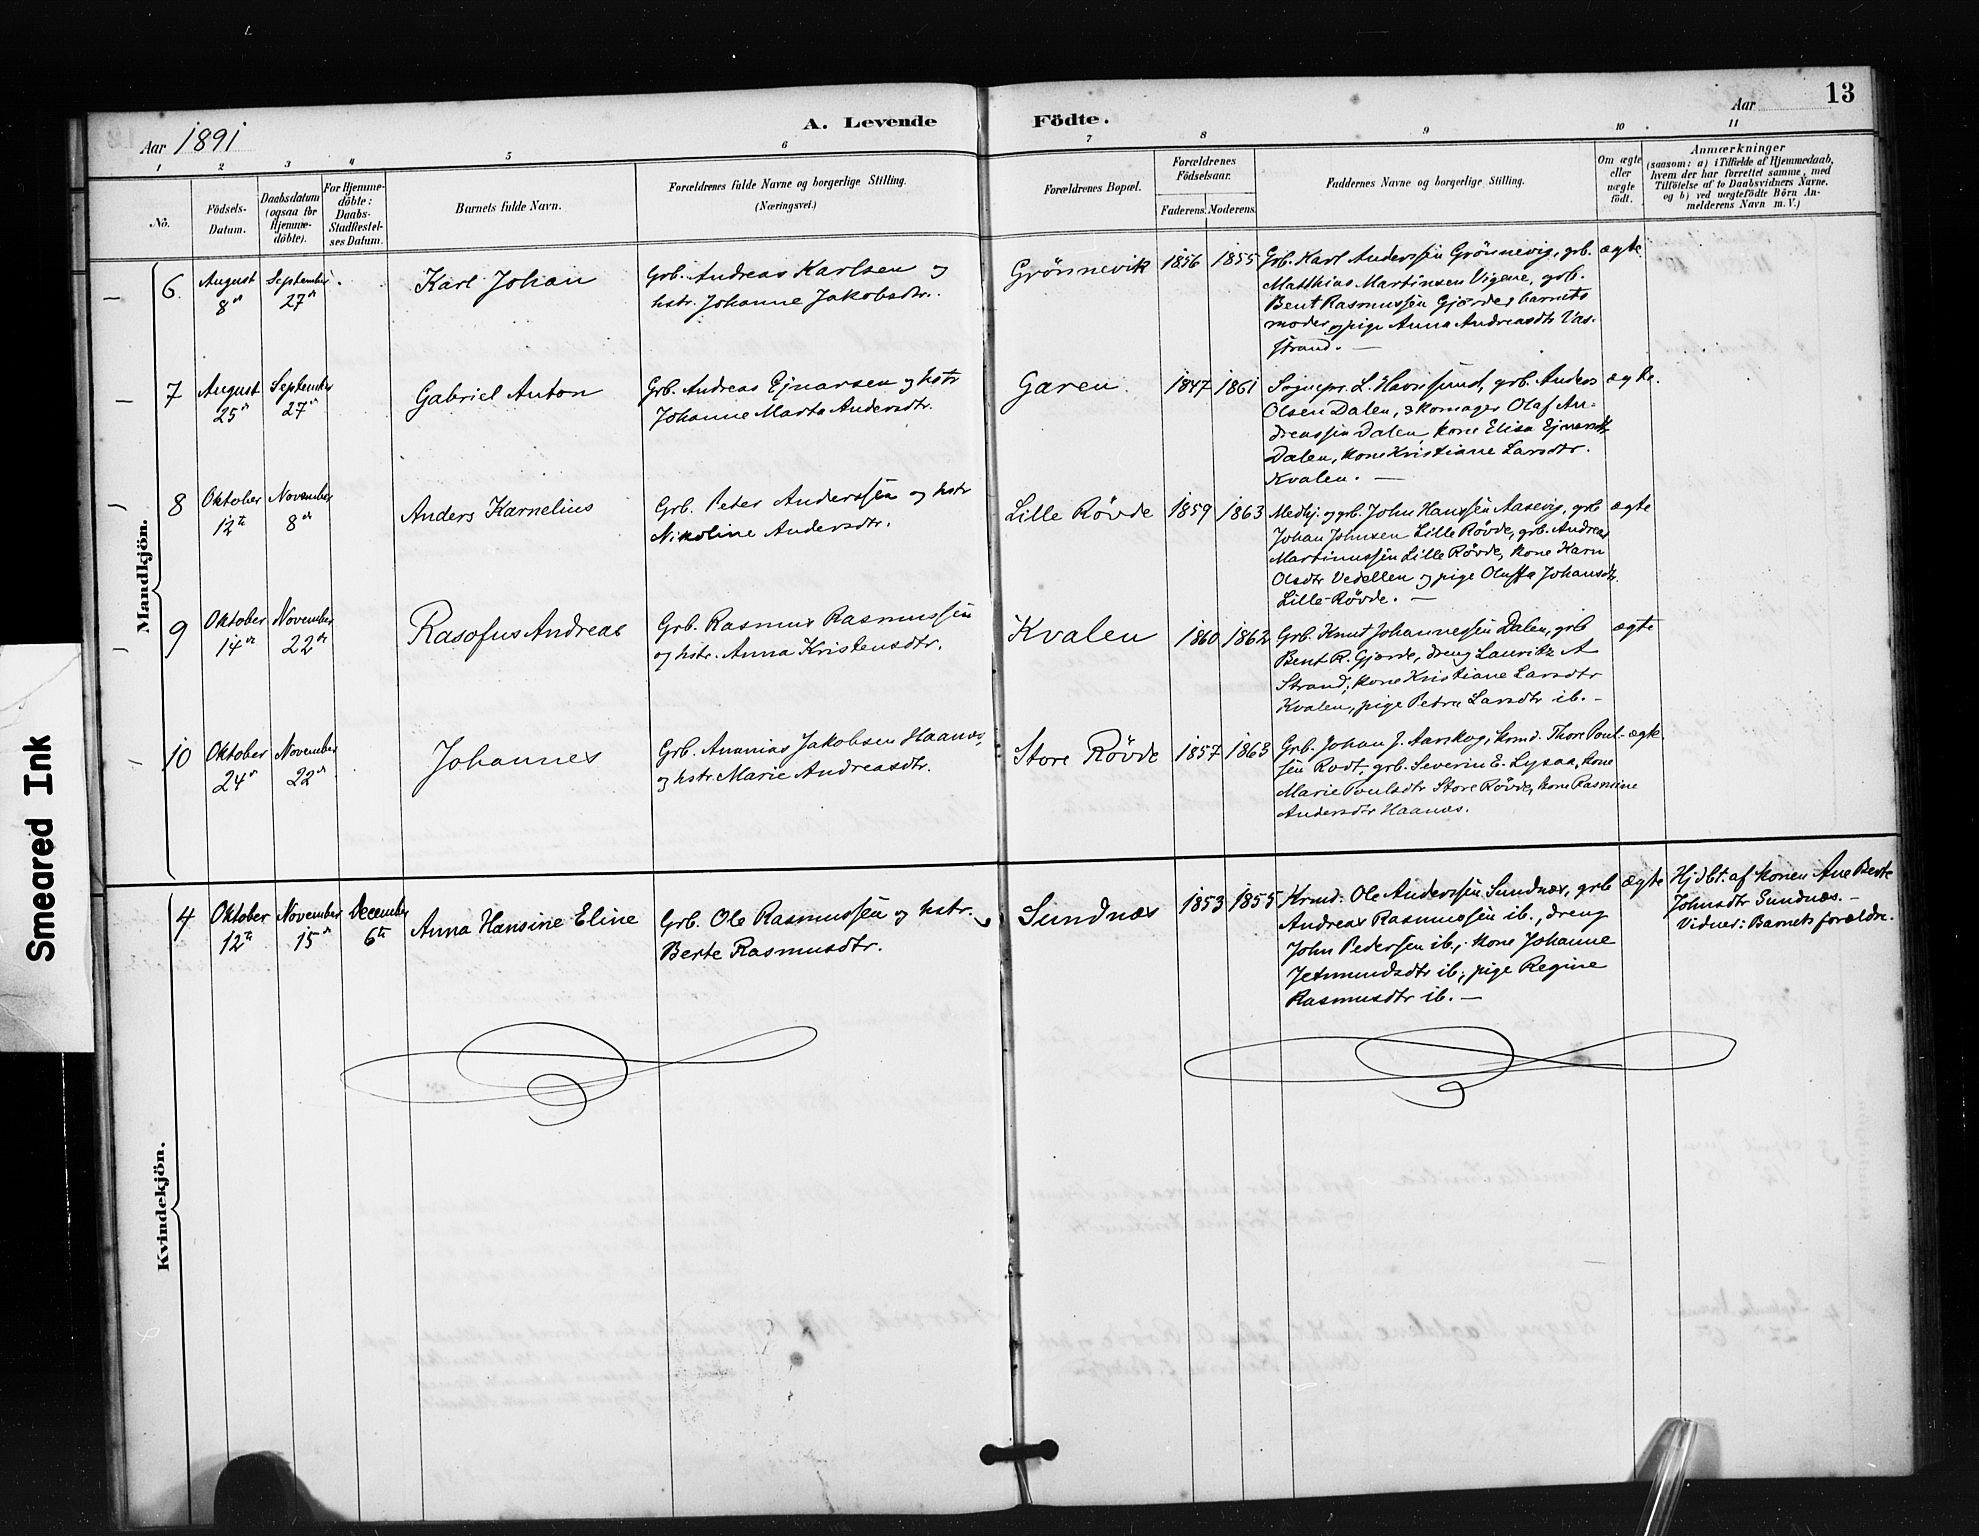 13
Aar 1891
A. Levende Födte.
Aar
1 2 3 4 5 6 7 8 9 10 11
No.
Födsels-
Datum.
Daabsdatum
(ogsaa for
Hjemme-
döbte).
For Hjemme-
döbte:
Daabs-
Stadfæstel-
ses Datum.
Barnets fulde Navn.
Forældrenes fulde Navne og borgerlige Stilling.
(Næringsvei.)
Forældrenes Bopæl.
Forældrenes
Födselsaar.
Faderens. Moderens.
Faddernes Navne og borgerlige Stilling.
Om ægte
eller
uægte
födt.
Anmærkninger
(saasom: a) i Tilfælde af Hjemmedaab,
hvem der har forrettet samme, med
Tilföielse af to Daabsvidners Navne.
og b) ved uægtefödte Börn An-
melderens Navn m. V.)
Mandkjön.
6.
August
8de
September
27de
Karl Johan
Grb. Andreas Karlsen og
hstr. Johanne Jakobsdtr.
Grönnevik
1856
1855
Grb. Karl Anderssen Grönnevig, grb.
Matthias Martinsen Vigene, grb.
Bent Rasmussen Gjærde, barnets
moder og pige Anna Andreasdtr Vas-
strand. —
ægte
7
August
25de
September
27de
Gabriel Anton
Grb. Andreas Ejnarsen og hstr
Johanne Marta Andersdtr.
Garen
1847
1861
Sognepr. L. Havnsund, grb. Anders
Olsen Dalen, skomager Olaf An-
dreassen Dalen, kone Elisa Ejnarsdtr
Dalen, kone Kristiane Larsdtr.
Kvalen. —
ægte.
8
Oktober
12te
November
8de
Anders Karnelius
Grb. Peter Anderssen og hstr
Nikoline Andersdtr.
Lille Rövde
1859
1863
Medhj. og grb. John Hanssen Aasevig, grb
Johan Johnsen Lille Rövde, grb. Andreas
Martinussen Lille Rövde, kone Karn
Olsdtr Vedellen og pige Oluffa Johansdtr.
Lille-Rövde. —
ægte
9
Oktober
14de
November
22de
Rasofus Andreas
Grb. Rasmus Rasmussen
og hstr. Anna Kristensdtr.
Kvalen
1860
1862
Grb. Knut Johannessen Dalen, grb
Bent R. Gjærde, dreng Lauritz A
Strand, kone Kristiane Larsdtr
Kvalen, pige Petra Larsdtr ib. –
ægte
10
Oktober
24de
November
22de
Johannes
Grb. Ananias Jakobsen Haanæs,
og hstr Marie Andreasdtr.
Store Rövde
1857
1863
Grb. Johan J. Aarskog, krmd. Thore Poul-
sen Rodt, grb. Severin E. Lysaa, kone
Marie Poulsdtr Store Rövde, kone Rasmine
Andersdtr Haanæs.
ægte
Kvindekjön.
4
Oktober
12te
November
15de
December
6te
Anna Hansine Eline
Grb. Ole Rasmussen og hstr.
Berte Rasmusdtr.
Sundnæs
1853
1855
Krmd. Ole Anderssen Sundnæs, grb
Andreas Rasmussen ib., dreng
John Pedersen ib., kone Johanne
Jetmundsdtr ib., pige Regine
Rasmusdtr ib. —
ægte
Hjdbt. af konen Ane Berte
Johnsdtr Sundnæs. –
Vidner: Barnets forældre.
Smeared Ink